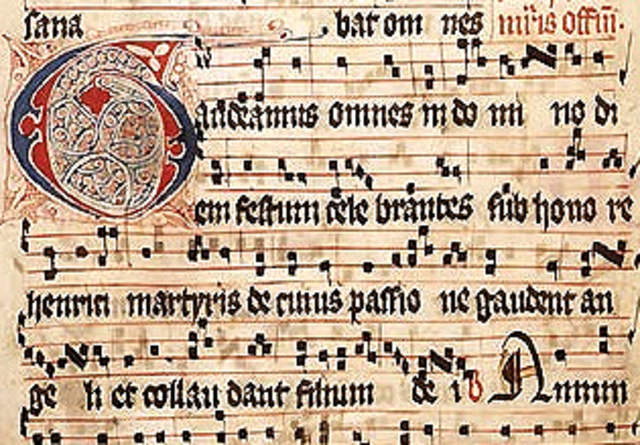 sana bat om nes
Gaudeamus omnes in do mi no di
em festum cele brantes sub hono re
henrici martyris de cuius passio ne gaudent an
ge li et collau dant filium de i Annim